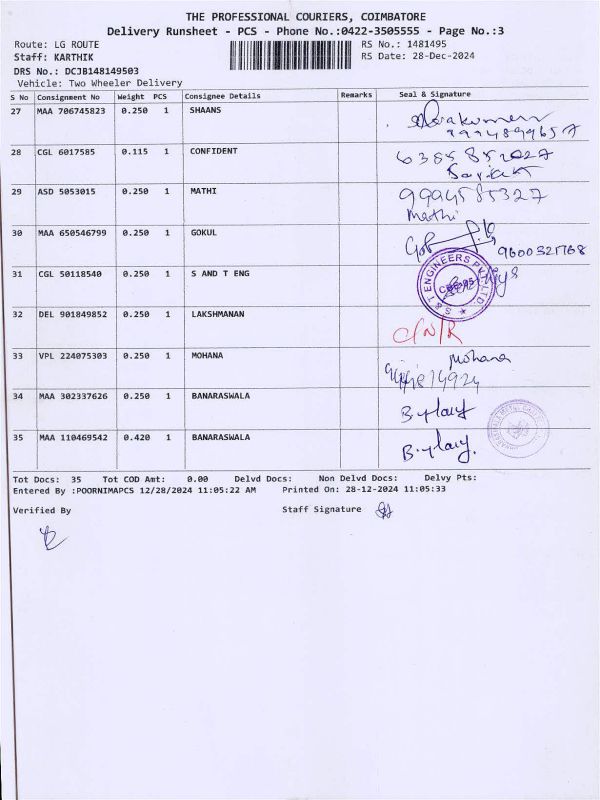 THE PROFESSIONAL COURIERS, COIMBATORE
Delivery Runsheet - PCS - Phone No.:0422-3505555 - Page No.:3
Route: LG ROUTE RS No.: 1481495
Staff: KARTHIK RS Date: 28-Dec-2024
DRS No.: DCJB148149503
Vehicle: Two Wheeler Delivery
S No Consignment No Weight PCS Consignee Details Remarks Seal & Signature
27 MAA 706745823 0.250 1 SHAANS
28 CGL 6017585 0.115 1 CONFIDENT
29 ASD 5053015 0.250 1 MATHI 9994585327
Mathi
30 MAA 650546799 0.250 1 GOKUL
9600321768
31 CGL 50118540 0.250 1 S AND T ENG
S & T ENGINEERS PVT LTD.
32 DEL 901849852 0.250 1 LAKSHMANAN
C/N/R
33 VPL 224075303 0.250 1 MOHANA Mohana
34 MAA 302337626 0.250 1 BANARASWALA
35 MAA 110469542 0.420 1 BANARASWALA
Tot Docs: 35 Tot COD Amt: 0.00 Delvd Docs: Non Delvd Docs: Delvy Pts:
Entered By :POORNIMAPCS 12/28/2024 11:05:22 AM Printed On: 28-12-2024 11:05:33
Verified By Staff Signature